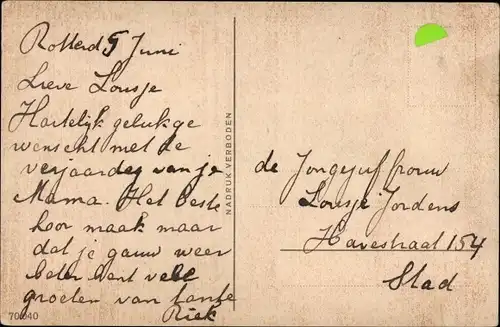 Rotterd 5 Juni
Lieve Lousje
Hartelijk gelukge
wenscht met de
verjaardag van je
Mama. Het beste
hoor maak maar
dat je gauw weer
beter bent vele
groeten van tante
Riek
70040
NADRUK VERBODEN
de Jongejuffrouw
Lousje Jordens
Havestraat 154
Stad